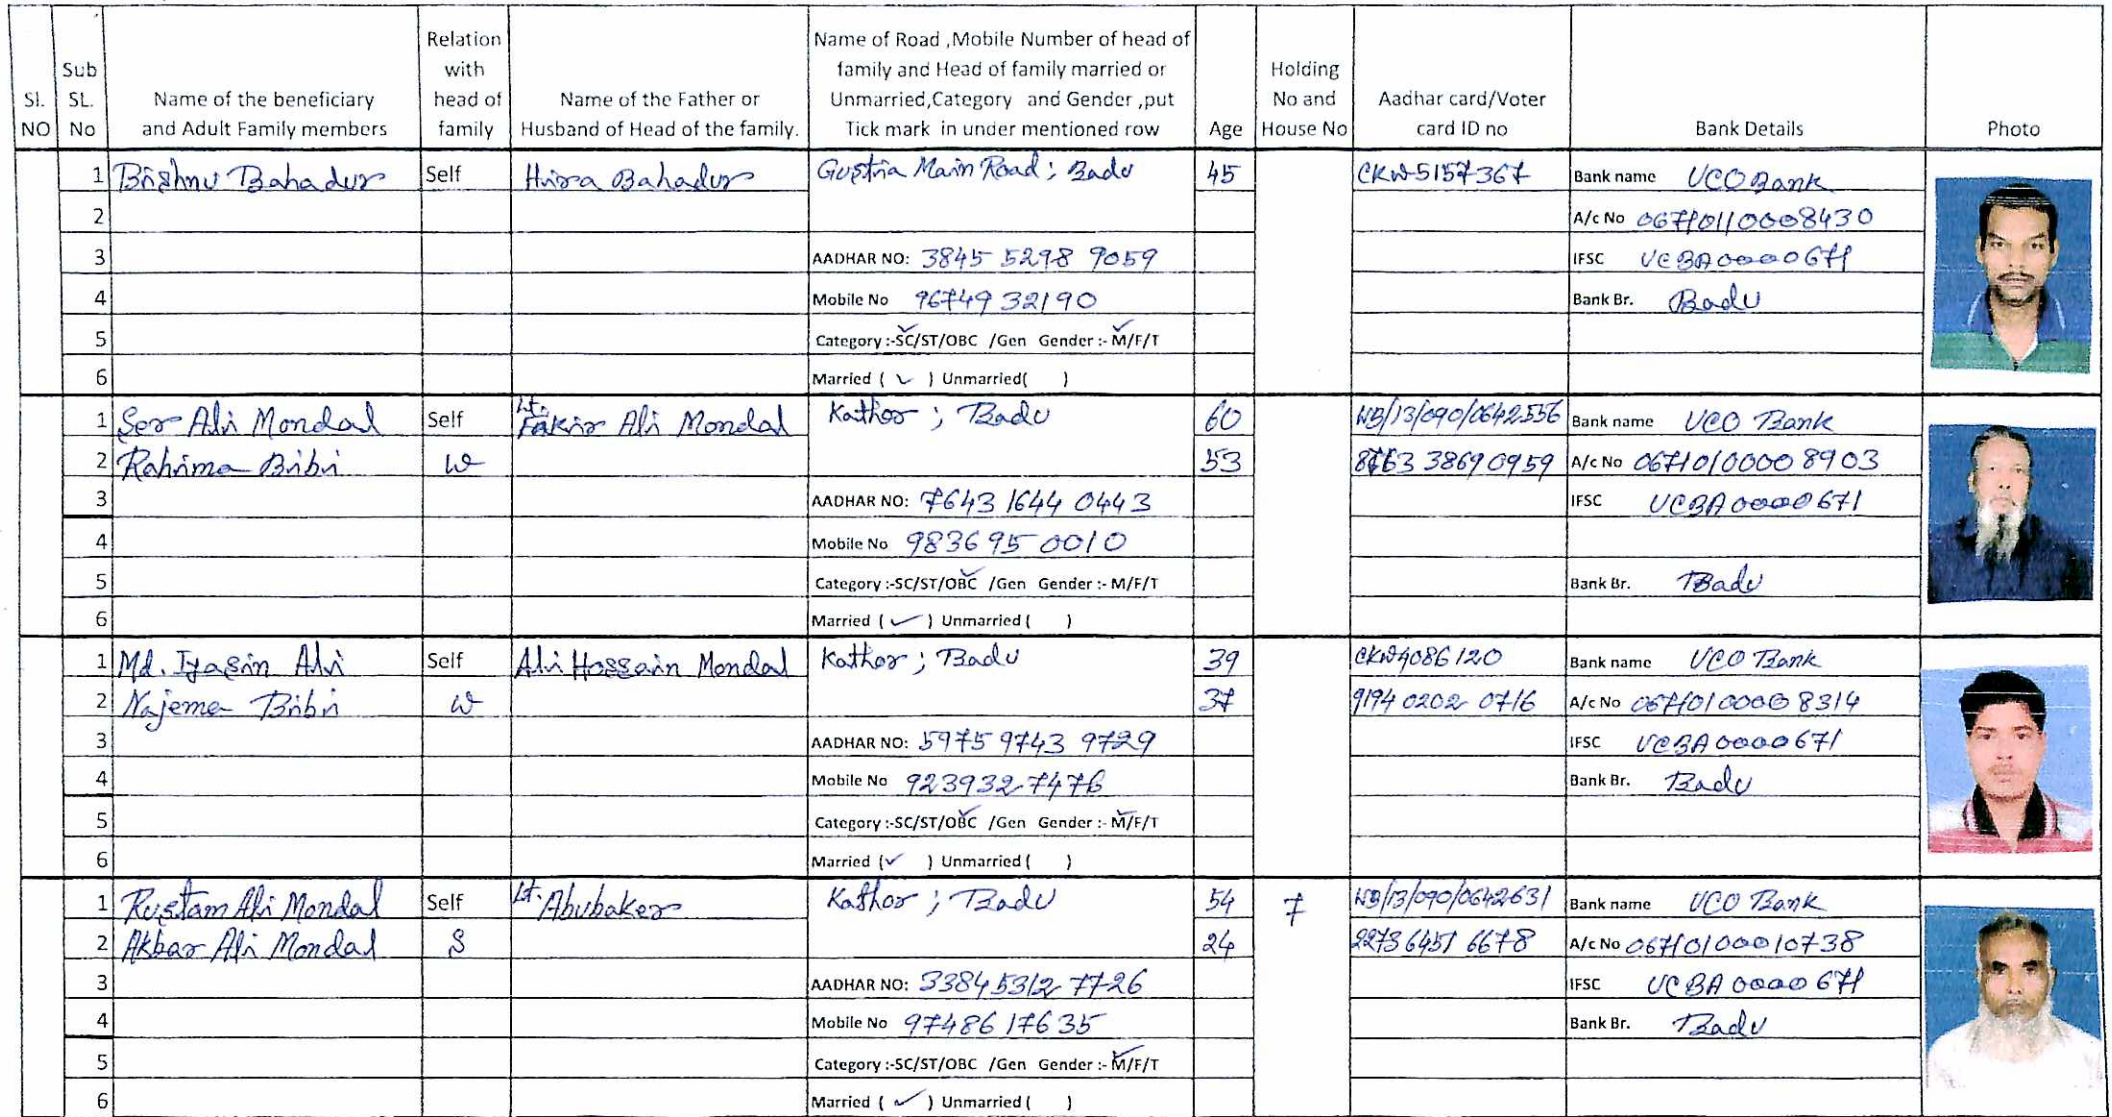 Sl. NO
Sub SL. No
Name of the beneficiary and Adult Family members
Relation with head of family
Name of the Father or Husband of Head of the family.
Name of Road ,Mobile Number of head of family and Head of family married or Unmarried,Category and Gender ,put Tick mark in under mentioned row
Age
Holding No and House No
Aadhar card/Voter card ID no
Bank Details
Photo
1 Bishnu Bahadur Self Hira Bahadur Gustia Main Road; Badu 45 CKW5157367 Bank name UCO Bank
2 A/c No 06710110008430
3 AADHAR NO: 3845 5298 9059 IFSC UCBA0000671
4 Mobile No 9674932190 Bank Br. Badu
5 Category :-SC/ST/OBC /Gen Gender :- M/F/T
6 Married ( ✓ ) Unmarried( )
1 Ser Ali Mondal Self Lt. Fakir Ali Mondal Kathor ; Badu 60 WB/13/090/0642556 Bank name UCO Bank
2 Rahima Bibi W 53 A/c No 06710100008903
3 AADHAR NO: 7643 1644 0443 IFSC UCBA0000671
4 Mobile No 9836950010
5 Category :-SC/ST/OBC /Gen Gender :- M/F/T Bank Br. Badu
6 Married ( ✓ ) Unmarried ( )
1 Md. Iyasin Ali Self Ali Hossain Mondal Kathor ; Badu 39 CKW4086120 Bank name UCO Bank
2 Najema Bibi W 37 9194 0202 0716 A/c No 06710100008314
3 AADHAR NO: 5975 9743 9729 IFSC UCBA0000671
4 Mobile No 9239327476 Bank Br. Badu
5 Category :-SC/ST/OBC /Gen Gender :- M/F/T
6 Married (✓ ) Unmarried ( )
1 Rustam Ali Mondal Self Lt. Abubaker Kathor ; Badu 54 7 WB/13/090/0642631 Bank name UCO Bank
2 Akbar Ali Mondal S 24 2273 6451 6678 A/c No 06710100010738
3 AADHAR NO: 3384 5312 7726 IFSC UCBA0000671
4 Mobile No 9748617635 Bank Br. Badu
5 Category :-SC/ST/OBC /Gen Gender :- M/F/T
6 Married ( ✓ ) Unmarried ( )